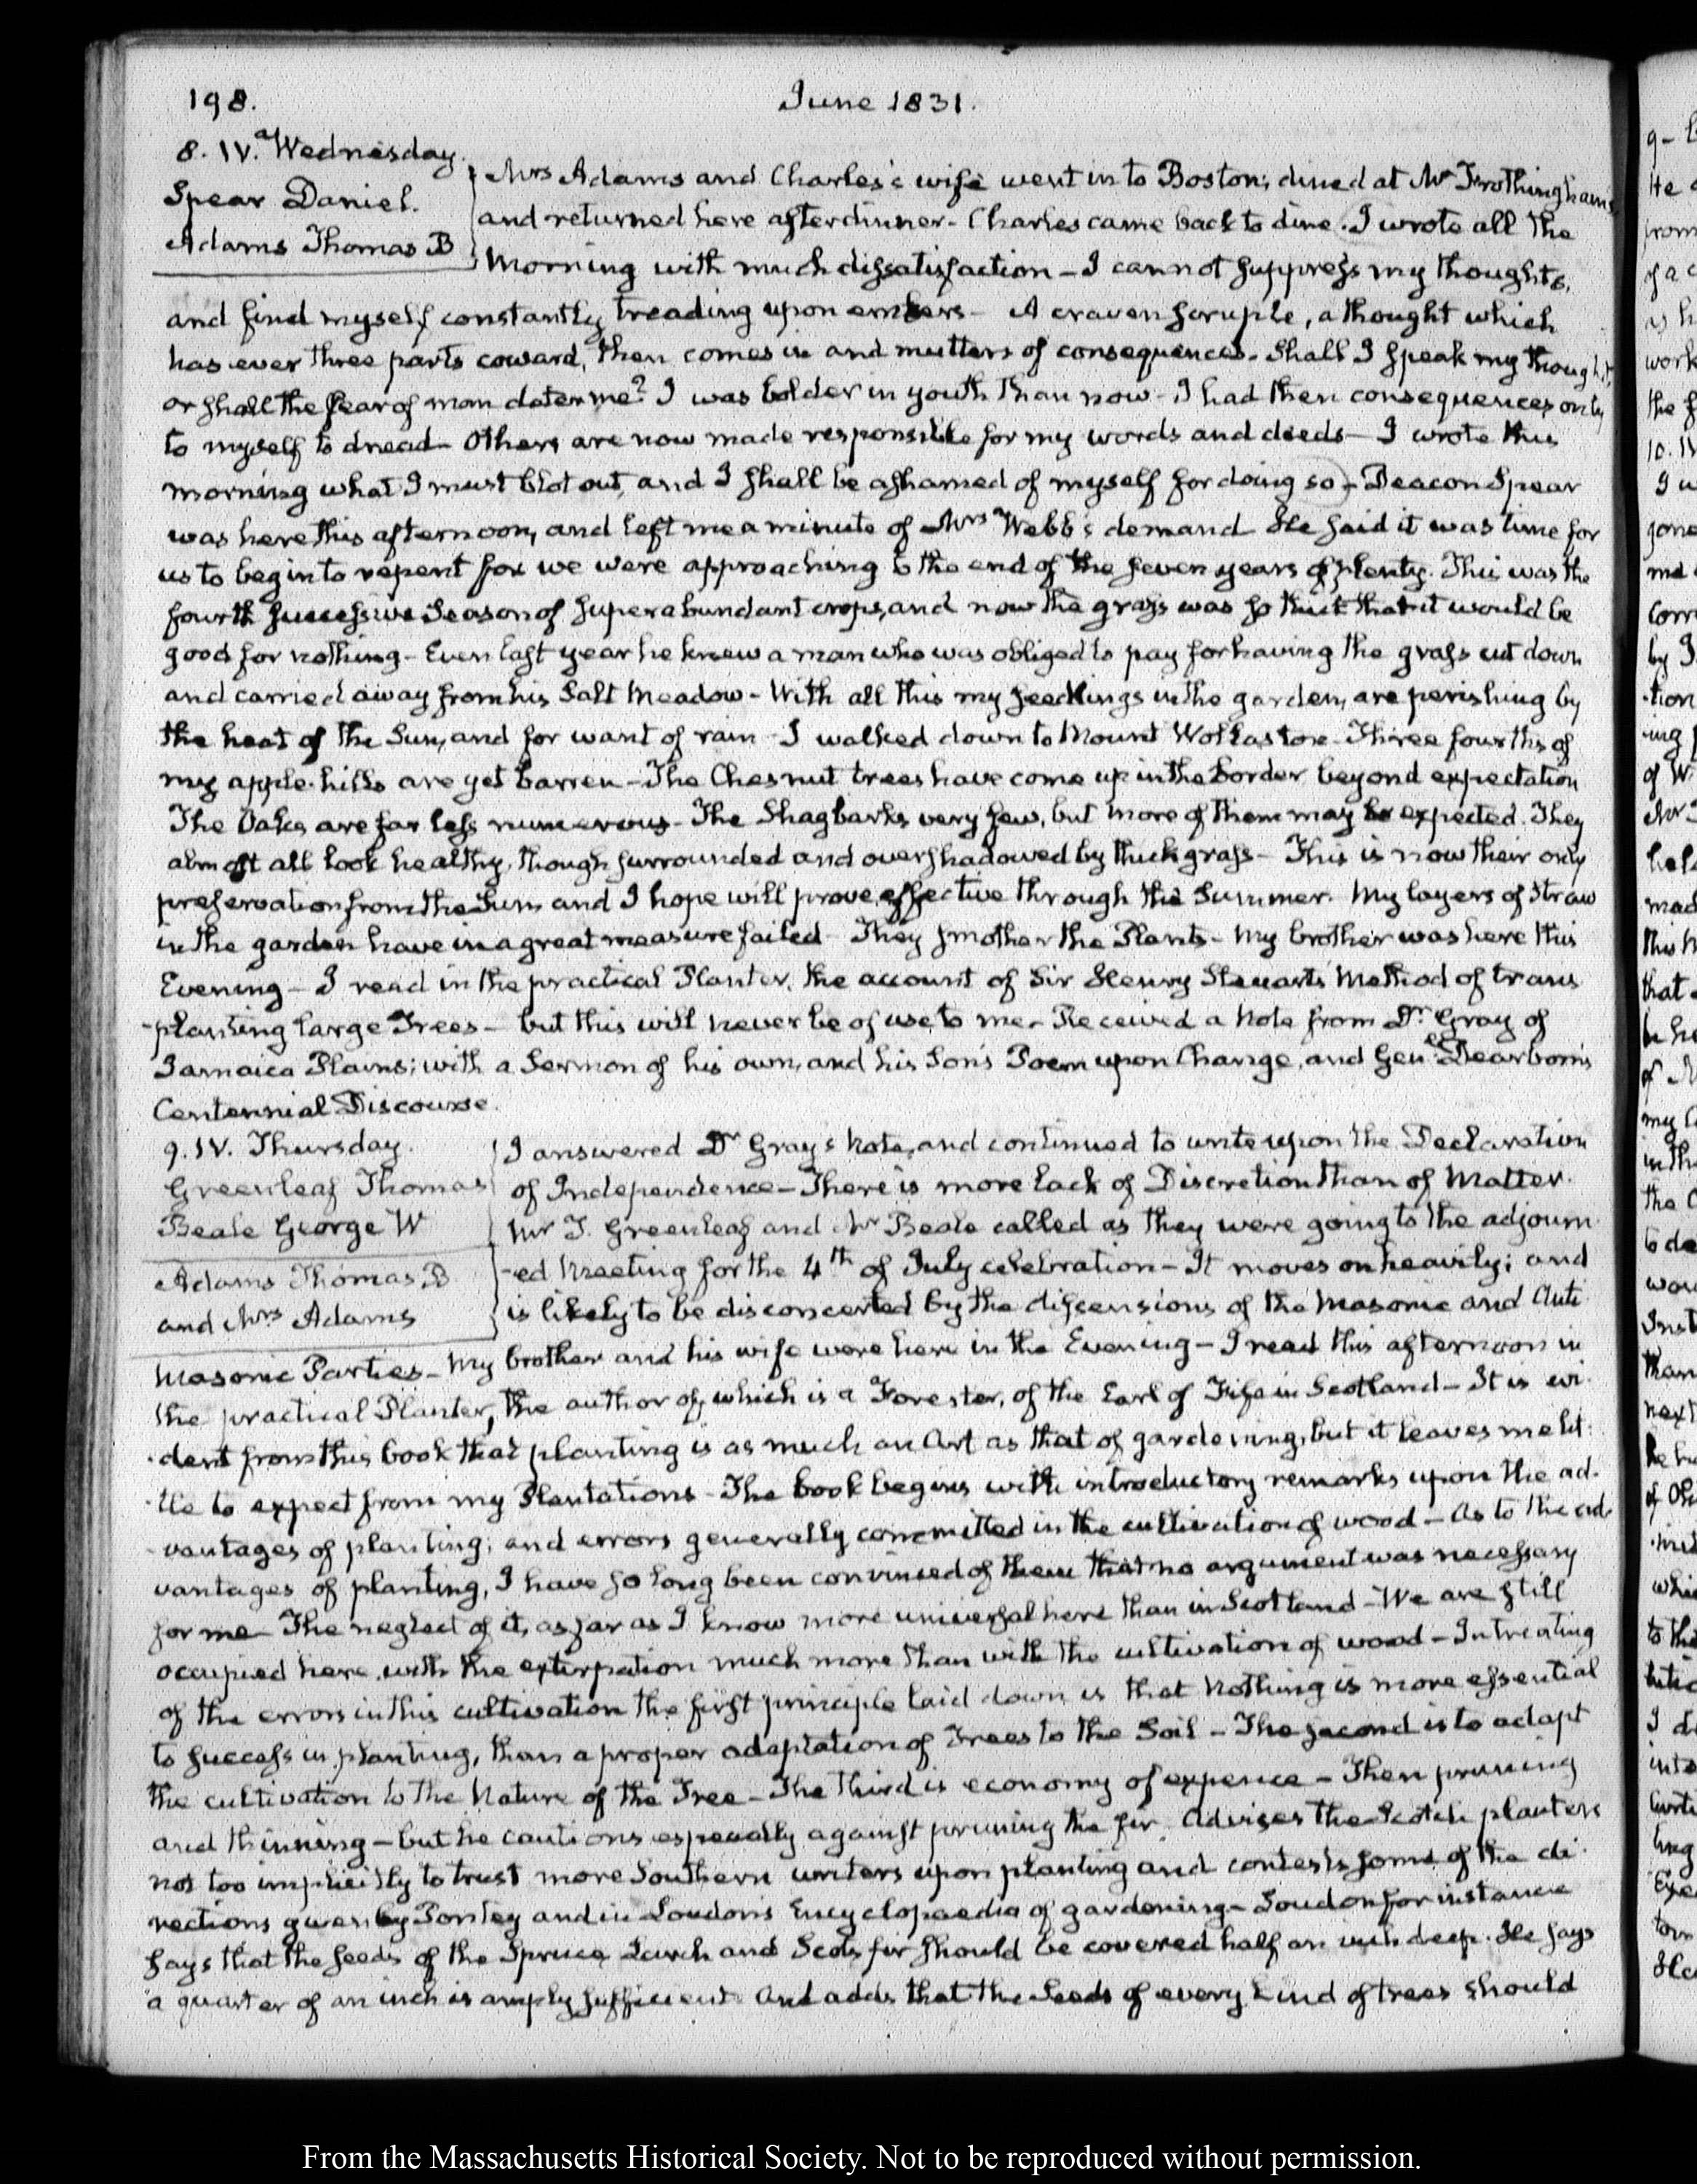 198.
June 1831.
8. IV. Wednesday.
Spear Daniel.
Adams Thomas B
Mrs Adams and Charles's wife went in to Boston; dined at Mr Frothingham's
and returned here after dinner - Charles came back to dine. I wrote all the
Morning with much dissatisfaction - I cannot suppress my thoughts,
and find myself constantly treading upon embers - A craven scruple, a thought which
has ever three parts coward, then comes in and mutters of consequences. Shall I speak my thoughts,
or shall the fear of man deter me? I was bolder in youth than now - I had then consequences only
to myself to dread - Others are now made responsible for my words and deeds - I wrote this
morning what I must blot out, and I shall be ashamed of myself for doing so - Deacon Spear
was here this afternoon, and left me a minute of Mrs Webb's demand He said it was time for
us to begin to repent for we were approaching to the end of the seven years of plenty. This was the
fourth successive Season of superabundant crops, and now the grass was so thick that it would be
good for nothing - Even last year he knew a man who was obliged to pay for having the grass cut down
and carried away from his Salt Meadow - With all this my seedlings in the garden, are perishing by
the heat of the Sun, and for want of rain - I walked down to Mount Wollaston - Three fourths of
my apple-hills are yet barren - The Chesnut trees have come up in the border beyond expectation
The Oaks are far less numerous - The Shagbarks very few, but more of them may be expected. They
almost all look healthy, though surrounded and overshadowed by thick grass - This is now their only
preservation from the Sun, and I hope will prove effective through the Summer. My layers of Straw
in the garden have in a great measure failed - They smother the Plants - My brother was here this
Evening - I read in the practical Planter, the account of Sir Henry Steuart's Method of trans
-planting large Trees - but this will never be of use to me - Received a Note from Dr. Gray of
Jamaica Plains; with a Sermon of his own, and his Son's Poem upon Change, and Genl Dearborn's
Centennial Discourse.
9. IV. Thursday.
Greenleaf Thomas
Beale George W
Adams Thomas B
and Mrs Adams
I answered Dr Gray's Note, and continued to write upon the Declaration
of Independence - There is more lack of Discretion than of Matter.
Mr T. Greenleaf and Mr Beale called as they were going to the adjourn
-ed Meeting for the 4th of July celebration - It moves on heavily; and
is likely to be disconcerted by the dissensions of the Masonic and Anti
Masonic Parties - My brother and his wife were here in the Evening - I read this afternoon in
the practical Planter, the author of which is a Forester, of the Earl of Fife in Scotland - It is evi
-dent from this book that planting is as much an Art as that of gardening, but it leaves me lit-
-tle to expect from my Plantations - The book begins with introductory remarks upon the ad-
-vantages of planting; and errors generally committed in the cultivation of wood - As to the ad-
vantages of planting, I have so long been convinced of them that no argument was necessary
for me - The neglect of it, as far as I know more universal here than in Scotland - We are still
occupied here with the extirpation much more than with the cultivation of wood - In treating
of the errors in this cultivation the first principle laid down is that Nothing is more essential
to success in planting, than a proper adaptation of Trees to the Soil - The second is to adapt
the cultivation to the Nature of the Tree - The third is economy of expence - Then pruning
and thinning - but he cautions especially against pruning the fir. Advises the Scotch planters
not too implicitly to trust more Southern writers upon planting and contests some of the di-
rections given by Pontey and in Loudon's Encyclopaedia of gardening - Loudon for instance
says that the seeds of the Spruce Larch and Scots fir should be covered half an inch deep. He says
a quarter of an inch is amply sufficient And adds that the Seeds of every kind of trees should
From the Massachusetts Historical Society. Not to be reproduced without permission.